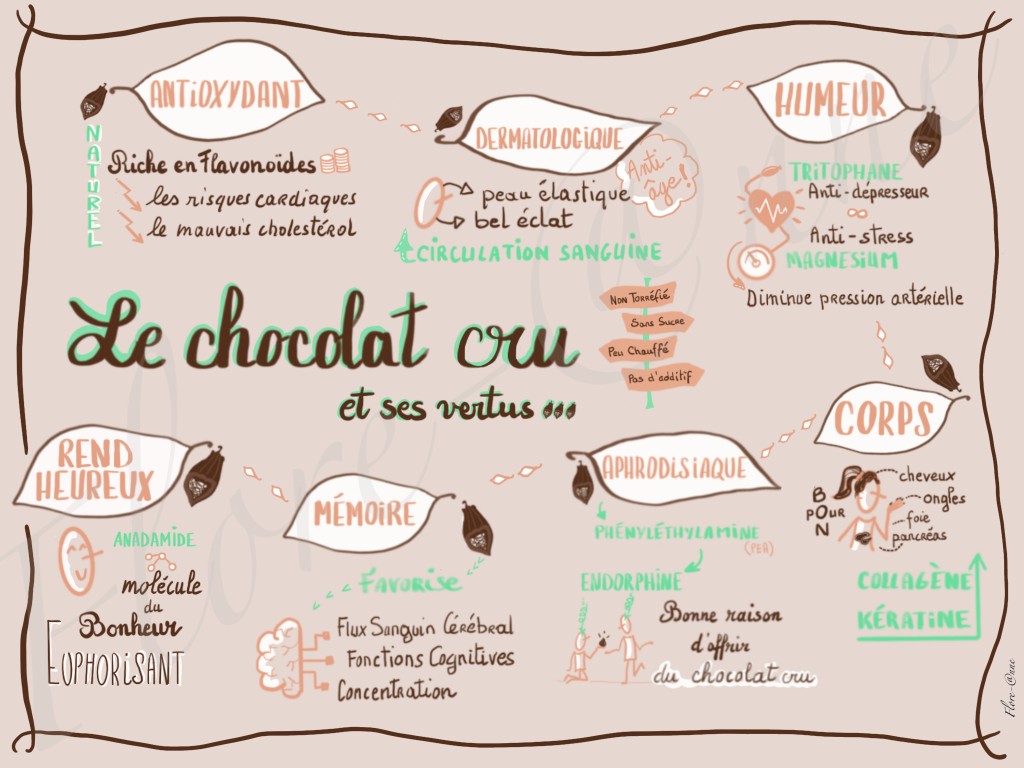 ANTIOXYDANT
NATUREL
Riche en Flavonoïdes
les risques cardiaques
le mauvais cholestérol
DERMATOLOGIQUE
Anti-
âge!
peau élastique
bel éclat
CIRCULATION SANGUINE
HUMEUR
TRITOPHANE
Anti-dépresseur
Anti-stress
MAGNESIUM
Diminue pression artérielle
Le chocolat cru
et ses vertus
Non Torréfié
Sans Sucre
Peu Chauffé
Pas d'additif
REND
HEUREUX
ANADAMIDE
molécule
du
Bonheur
EUPHORISANT
MÉMOIRE
Favorise
Flux Sanguin Cérébral
Fonctions Cognitives
Concentration
APHRODISIAQUE
PHÉNYLÉTHYLAMINE
(PEA)
ENDORPHINE
Bonne raison
d'offrir
du chocolat cru
CORPS
BON
POUR
cheveux
ongles
foie
pancréas
COLLAGÈNE
KÉRATINE
Flore-@nne
Flore-@nne